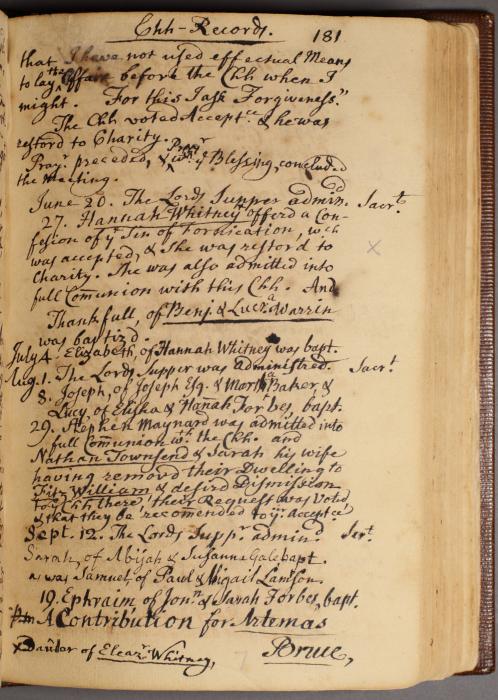 Chh-Records. 181
that I have not used effectual Means
to lay the Affair before the Chh when I
might. For this I ask Forgiveness."
The Chh voted Acceptce & he was
restord to Charity.
Prayr preceded, & Prayr wth ye Blessing, concluded
the Meeting.
June 20. The Lords Supper admind. Sacrt.
27. Hannah Whitney offerd a Con-
fession of ye Sin of Fornication, wch
was accepted, & she was restord to
Charity. She was also admitted into
full Comunion with this Chh. And
Thankfull, of Benj. & Lucra Warrin
was baptiz'd.
July 4. Elizabeth, of Hannah Whitney was bapt.
Aug. 1. The Lords Supper was administred. Sacr.t
8. Joseph, of Joseph Esq. & Martha Baker, &
Lucy, of Elisha & Hannah Forbes, bapt.
29. Stephen Maynard was admitted into
full Comunion wth. the Chh. and
Nathan Townsend & Sarah his wife
having removd their Dwelling to
Fitz William & desird Dismission
to ye Chh there, their Request was Voted
& that they be recomended to yr. Acceptce
Sept. 12. The Lords Suppr. admind. Sacrt.
Sarah, of Abijah & Susanna Gale bapt.
as was Samuel, of Paul & Abigail Lamson.
19. Ephraim of Jonn. & Sarah Forbes, bapt.
A Contribution for Artemas
Bruce,
x Daughtr of Eleazr. Whitney,